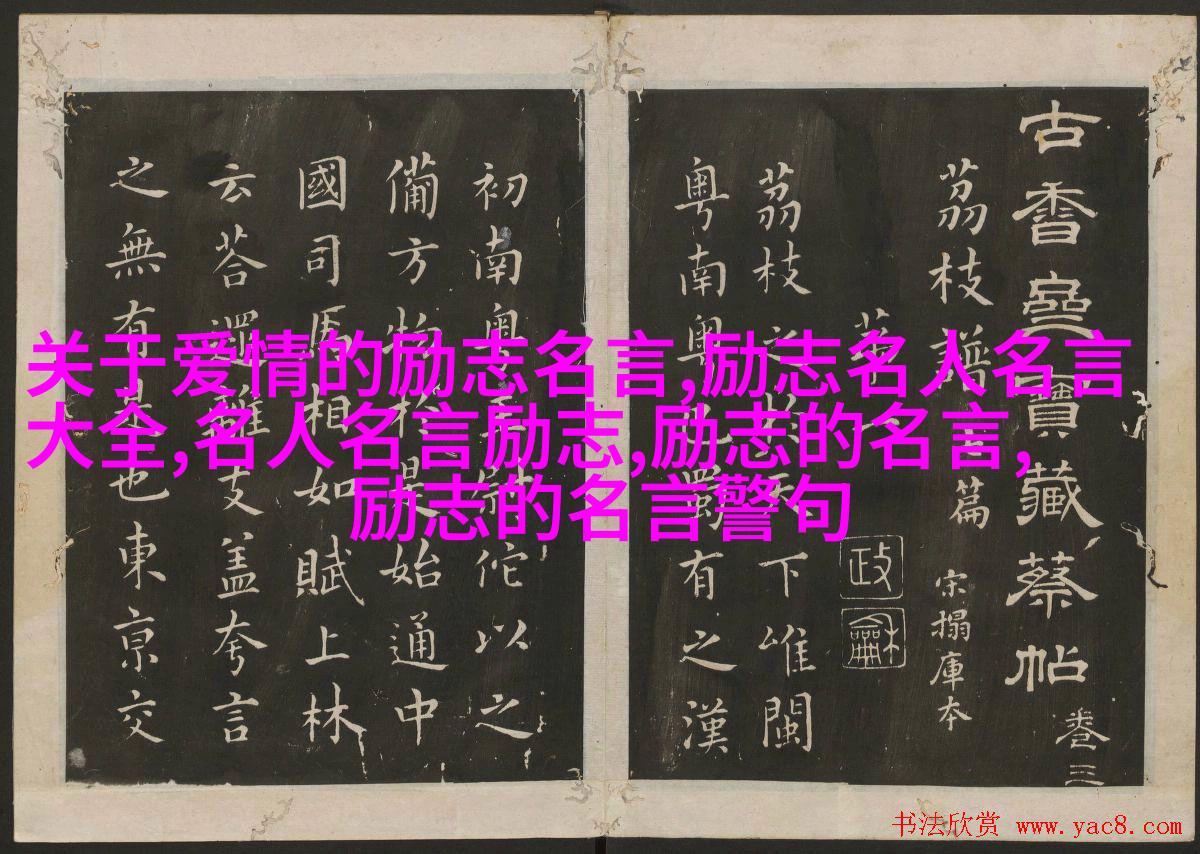 古香齋寶藏蔡帖 卷三
荔枝譜篇 宋搨庫本
第
政龢
荔枝之於天下唯閩
粵南粵巴蜀有之漢
初南粵王尉佗以之
備方物於是始通中
國司馬相如賦上林
云荅遝離支盖夸言
之無有是也東京交
关于爱情的励志名言,励志名人名言
大全,名人名言励志,励志的名言,
励志的名言警句
书法欣赏 www.yac8.com